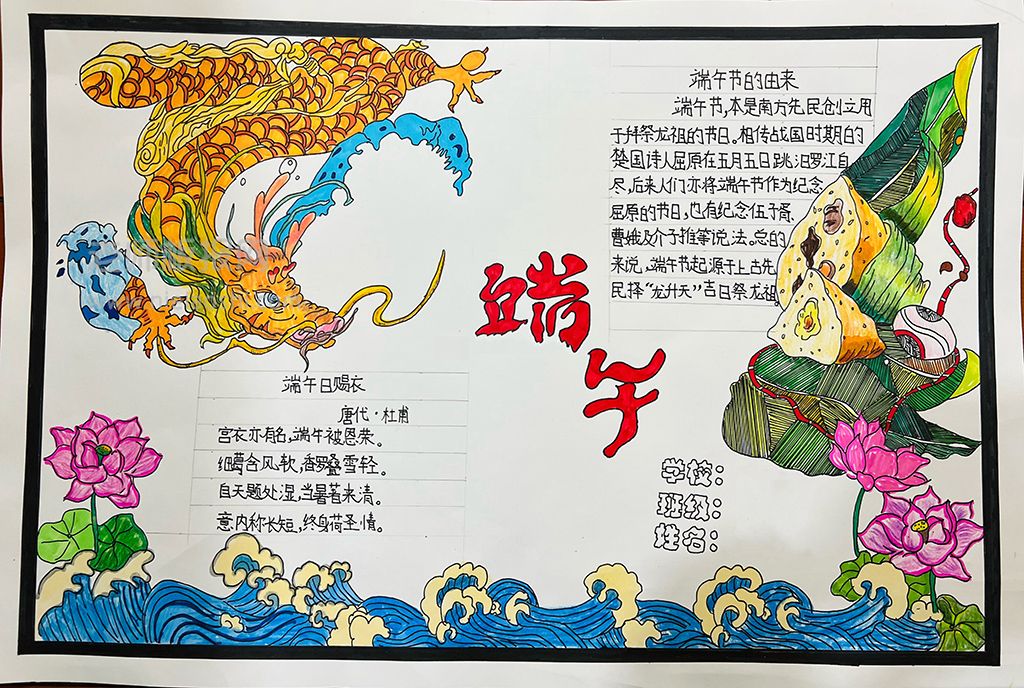 端午节的由来
端午节,本是南方先民创立用
于拜祭龙祖的节日。相传战国时期的
楚国诗人屈原在五月五日跳汨罗江自
尽,后来人们亦将端午节作为纪念
屈原的节日,也有纪念伍子胥、
曹娥及介子推等说法。总的
来说,端午节起源于上古先
民择“龙升天”吉日祭龙祖
端午
端午日赐衣
唐代·杜甫
宫衣亦有名,端午被恩荣。
细葛含风软,香罗叠雪轻。
自天题处湿,当暑著来清。
意内称长短,终身荷圣情。
学校:
班级:
姓名: